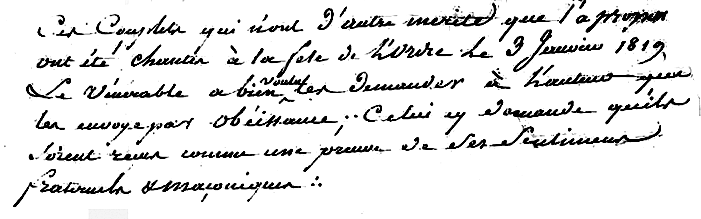 Ces Couplets qui n'ont d'autre mérite que l'à propos
ont été chantés à la fete de L'Ordre le 3 Janvier 1819
Le Vénérable a bien voulu les demander à L'auteur qui
les envoye par obéissance; Celui cy demande qu'ils
soient reçus comme une preuve de ses Sentimens
fraternels & maçoniques :.